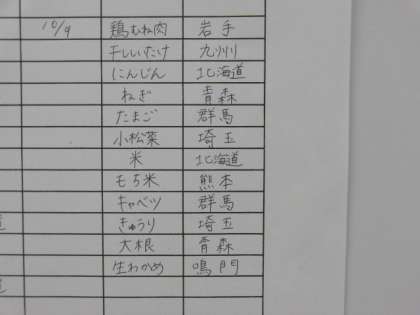 10/9 鶏むね肉 岩手
干ししいたけ 九州
にんじん 北海道
ねぎ 青森
たまご 群馬
小松菜 埼玉
米 北海道
もち米 熊本
キャベツ 群馬
きゅうり 埼玉
大根 青森
生わかめ 鳴門